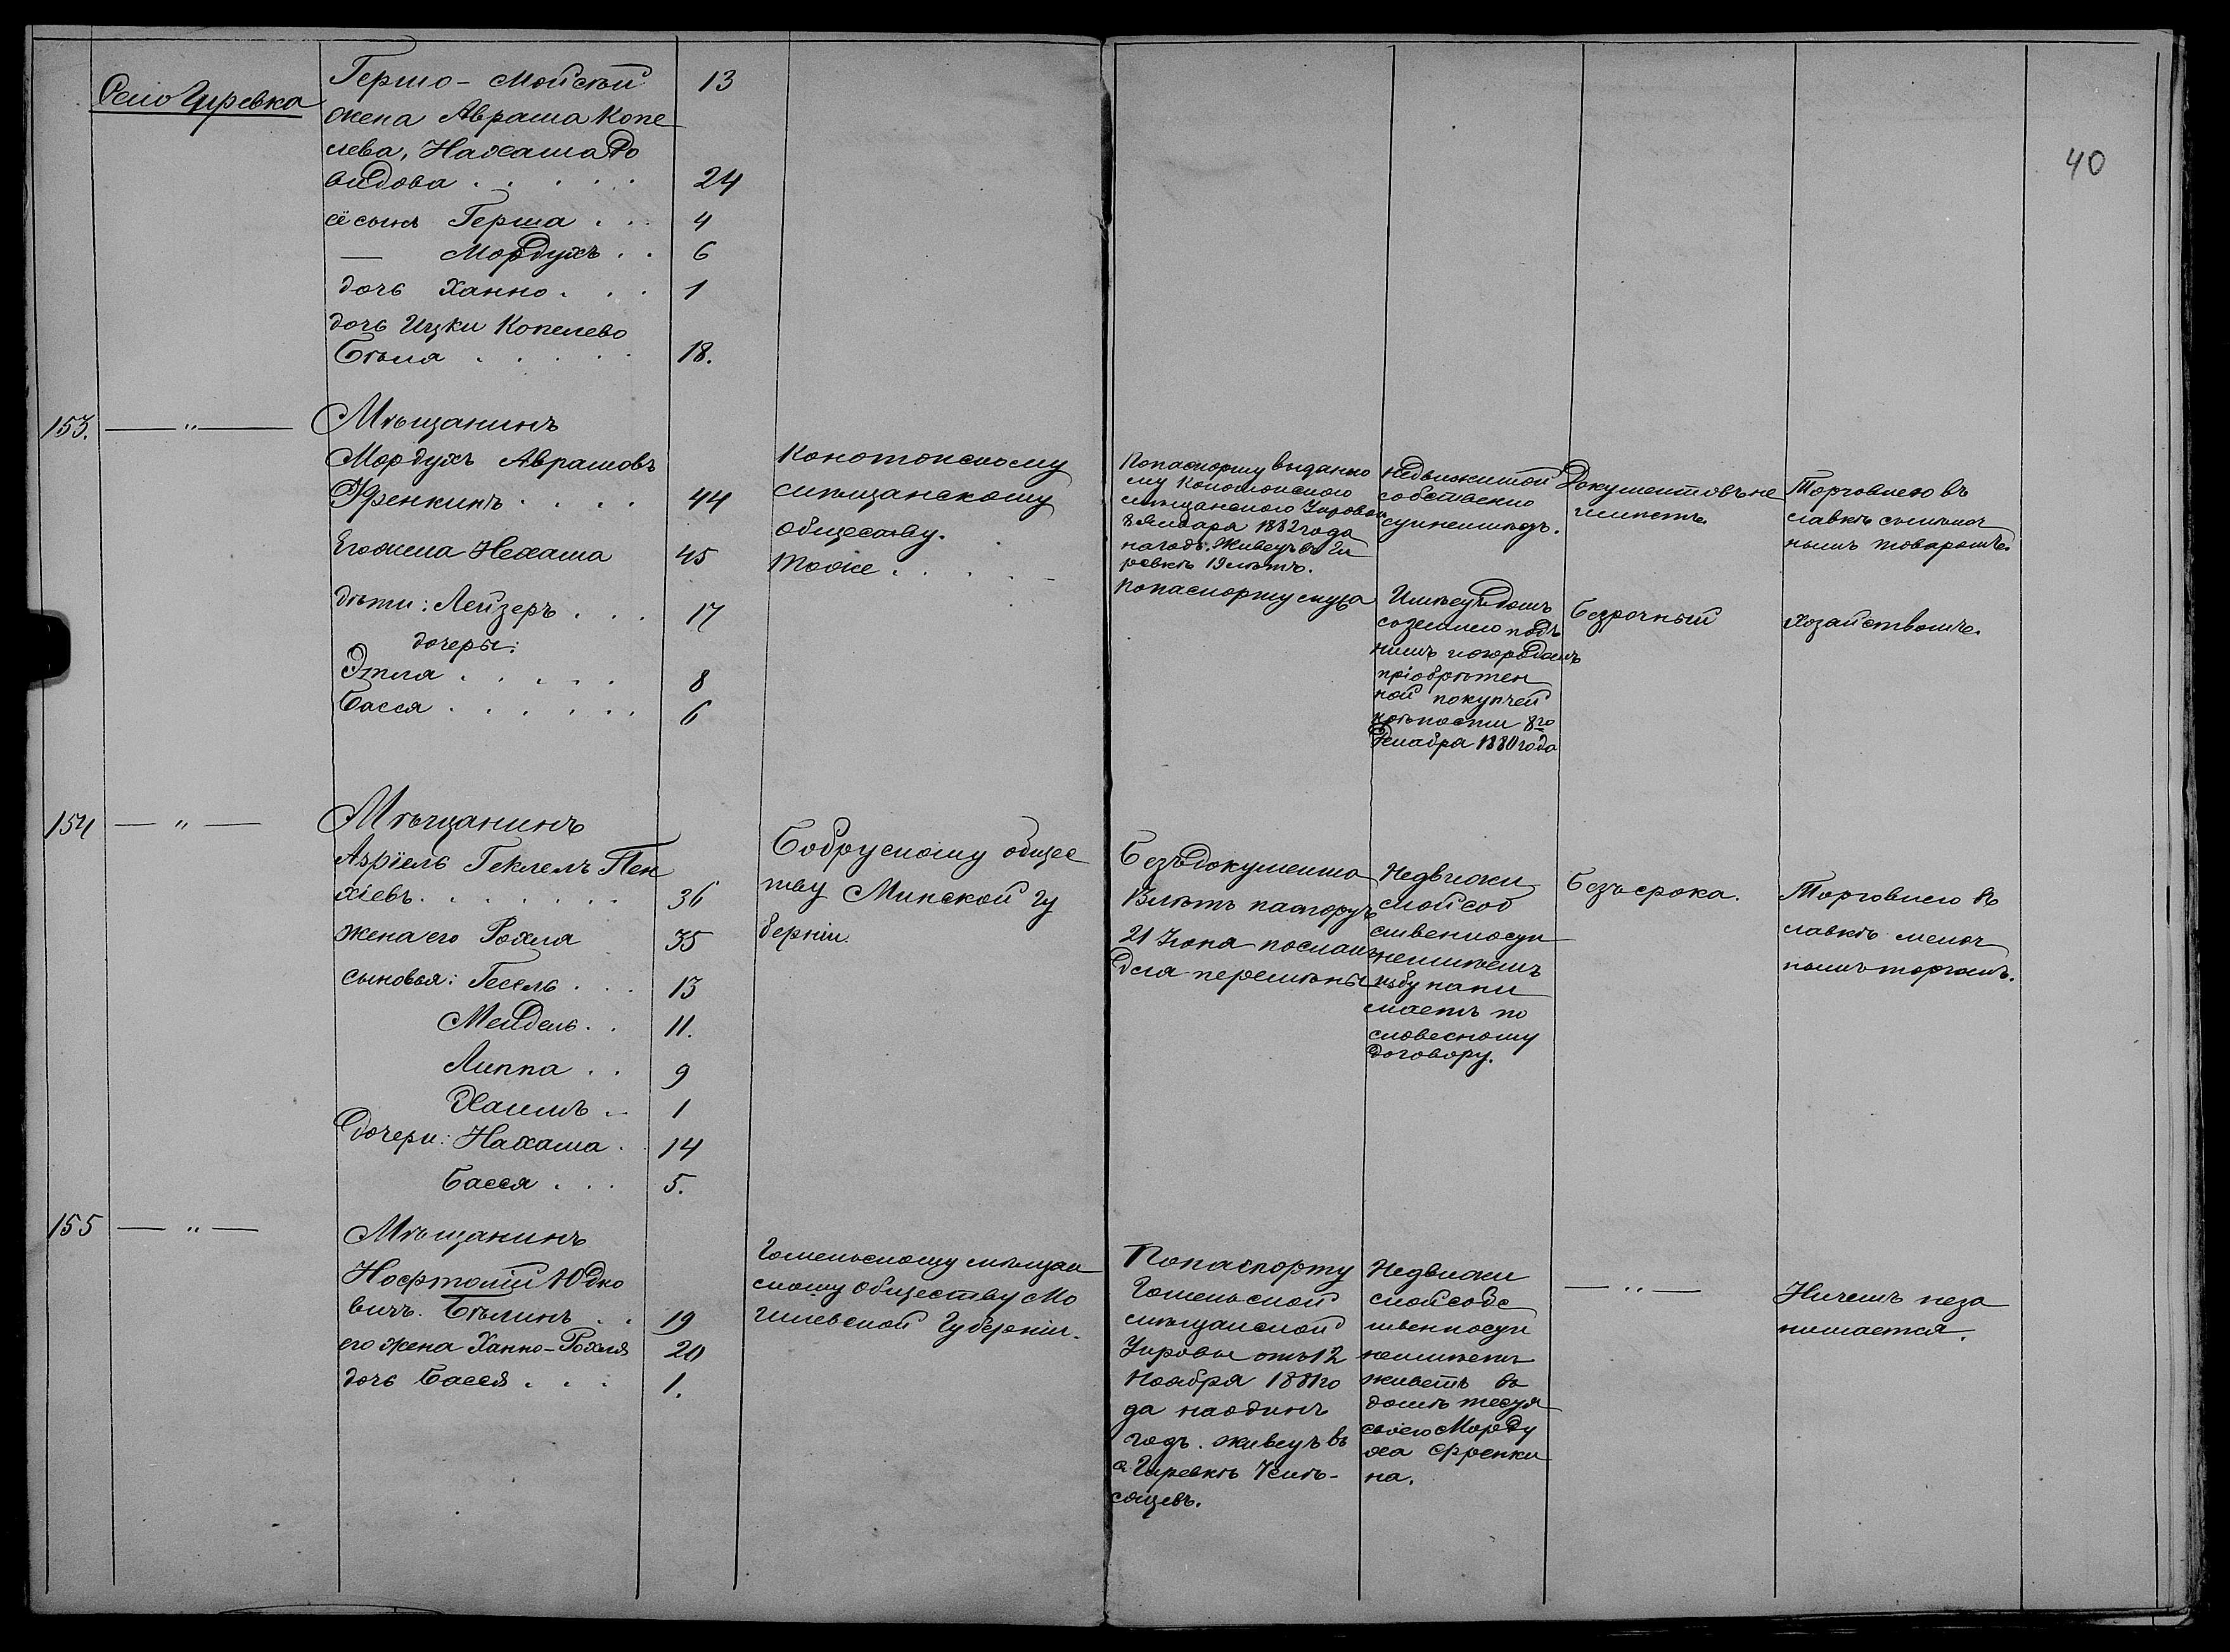 40
Село Гиревка
Гершо-Мойсей 13
жена Абрама Копе
лева, Нахама До
видова . . . . . 24
её сынъ Герша . . . 4
— Мордухъ . . 6
дочь Ханно . . . 1
дочь Ицки Копелево
Бѣля . . . . . 18.
153. — " — Мѣщанинъ
Мордухъ Абрамовъ
Френкинъ . . . . 44
Его жена Нехама 45
дѣти: Лейзеръ . . . 17
дочеры:
Этля . . . . . 8
Бася . . . . . . 6
Конотопскому
мѣщанскому
обществу.
Тоже . . . . .
По паспорту выданно
му Конотопского
мѣщанского Управою
8 Января 1882 года
на годъ. Живеуъ въ Ги
ревкѣ 19 лѣтъ.
По паспорту мужа
недвижимой
собственно
сти неимѣдъ.
Имѣеуъ домъ
соземлею подъ
нимъ и огородомъ
пріобрѣтен
ной покупчей
крѣпости 8го
Декабря 1880 года
Документовъ не
имѣетъ.
Безрочный
Торговлею въ
лавкѣ съ мѣлоч
нымъ товаромъ.
Хозяйствомъ.
154 — " — Мѣщанинъ
Азріель Геклелъ Пен
хіевъ . . . . . . . 36
жена его Рохля 35
сыновья: Гесель . . . 13
Мендель . . 11.
Липпа . . 9
Хаимъ . . 1
Дочери: Нахама . 14
Басея . . . 5.
Бобрускому общес
тву Минской Гу
берніи.
Бездокумента
21 Іюня послан
для перемѣны
Недвижи
мой соб
ственности
неимѣетъ
избу нани
маетъ по
словесному
договору.
Безъ срока.
Торговлею въ
лавкѣ мелоч
нымъ торгомъ.
155 — " — Мѣщанинъ
Нофтолій Юдко
вичъ. Бѣлинъ . . 19
его жена Ханно-Рохля 20
дочь Басея . . . 1.
Гомельскому мѣщан
скому Обществу Мо
гилевской Губерніи.
По паспорту
Гомельской
мѣщанской
Управы отъ 12
Ноября 1881 го
да на одинъ
годъ. живеуъ въ
с. Гиревкѣ 7 мѣ-
сяцевъ.
Недвижи
мой собс
твенности
неимѣетъ
живетъ въ
домѣ тестя
своего Морду
ха Френки
на.
— " —
Ничемъ неза
нимается.